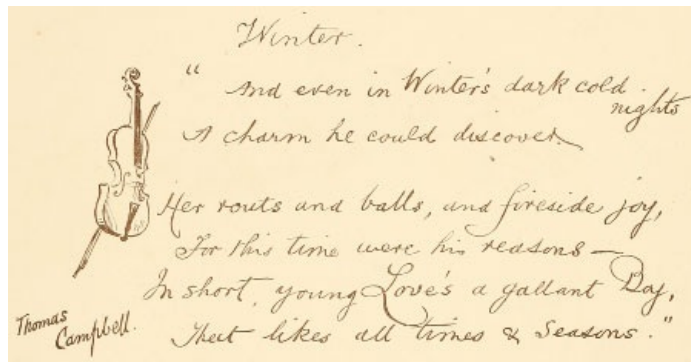 Winter.
" And even in Winter's dark cold nights
A charm he could discover
Her routs and balls, and fireside joy,
For this time were his reasons —
In short, young Love's a gallant Boy,
That likes all times & Seasons."
Thomas
Campbell.